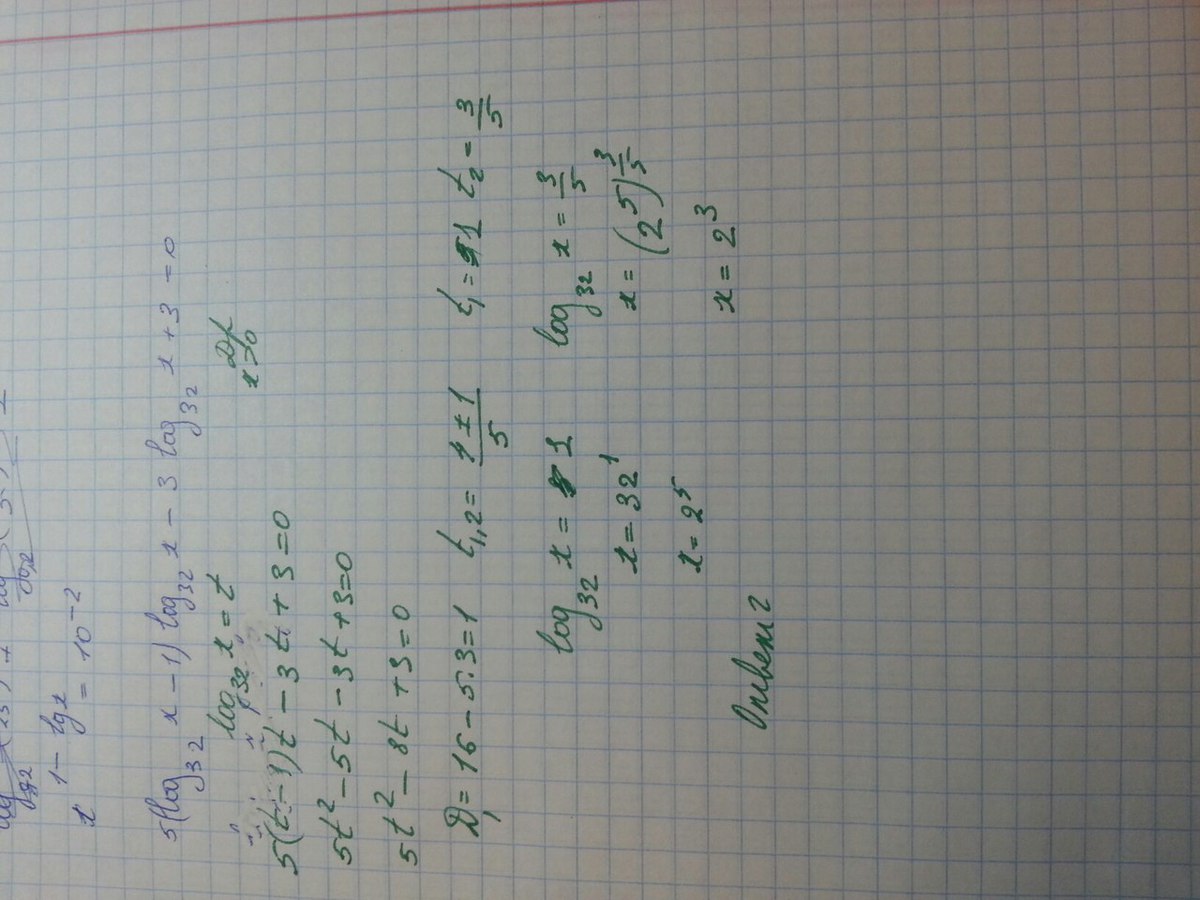 x^{1-lgx} = 10^{-2}
5(log_{32} x - 1) log_{32} x - 3 log_{32} x + 3 = 0
log_{32} x = t
x>0
5(t - 1)t - 3t + 3 = 0
5t^2 - 5t - 3t + 3 = 0
5t^2 - 8t + 3 = 0
D_1 = 16 - 5·3 = 1 t_{1,2} = \frac{4 ± 1}{5} t_1 = 1 t_2 = \frac{3}{5}
log_{32} x = 1 log_{32} x = \frac{3}{5}
x = 32^1 x = (2^5)^{\frac{3}{5}}
x = 2^5 x = 2^3
Ответ